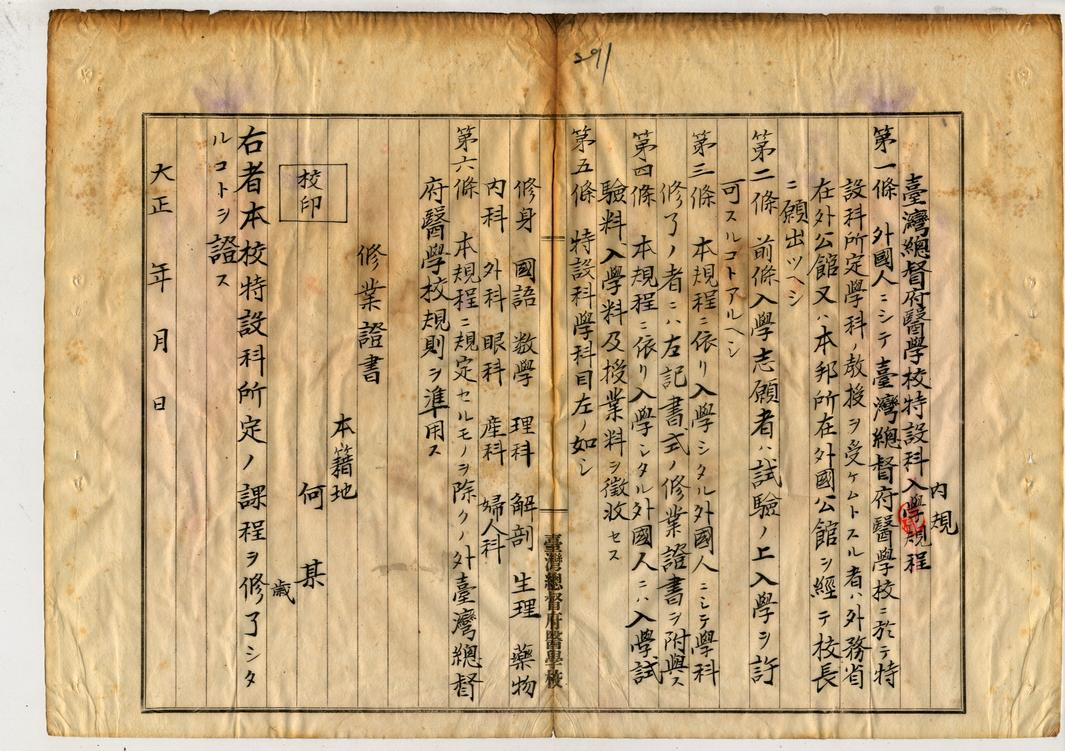 291
臺灣總督府醫學校特設科入學規程
内規
第一條 外國人ニシテ臺灣總督府醫學校ニ於テ特
設科所定學科ノ教授ヲ受ケムトスル者ハ外務省
在外公館又ハ本邦所在外國公館ヲ經テ校長
ニ願出ツヘシ
第二條 前條入學志願者ハ試驗ノ上入學ヲ許
可スルコトアルヘシ
第三條 本規程ニ依リ入學シタル外國人ニシテ學科
修了ノ者ニハ左記書式ノ修業證書ヲ附與ス
第四條 本規程ニ依リ入學シタル外國人ニハ入學試
驗料入學料及授業料ヲ徵收セス
第五條 特設科學科目左ノ如シ
臺灣總督府醫學校
修身 國語 数學 理科 解剖 生理 藥物
内科 外科 眼科 産科 婦人科
第六條 本規程ニ規定セルモノヲ除クノ外臺灣總督
府醫學校規則ヲ準用ス
修業證書
本籍地
何 某
歳
校印
右者本校特設科所定ノ課程ヲ修了シタ
ルコトヲ證ス
大正 年 月 日